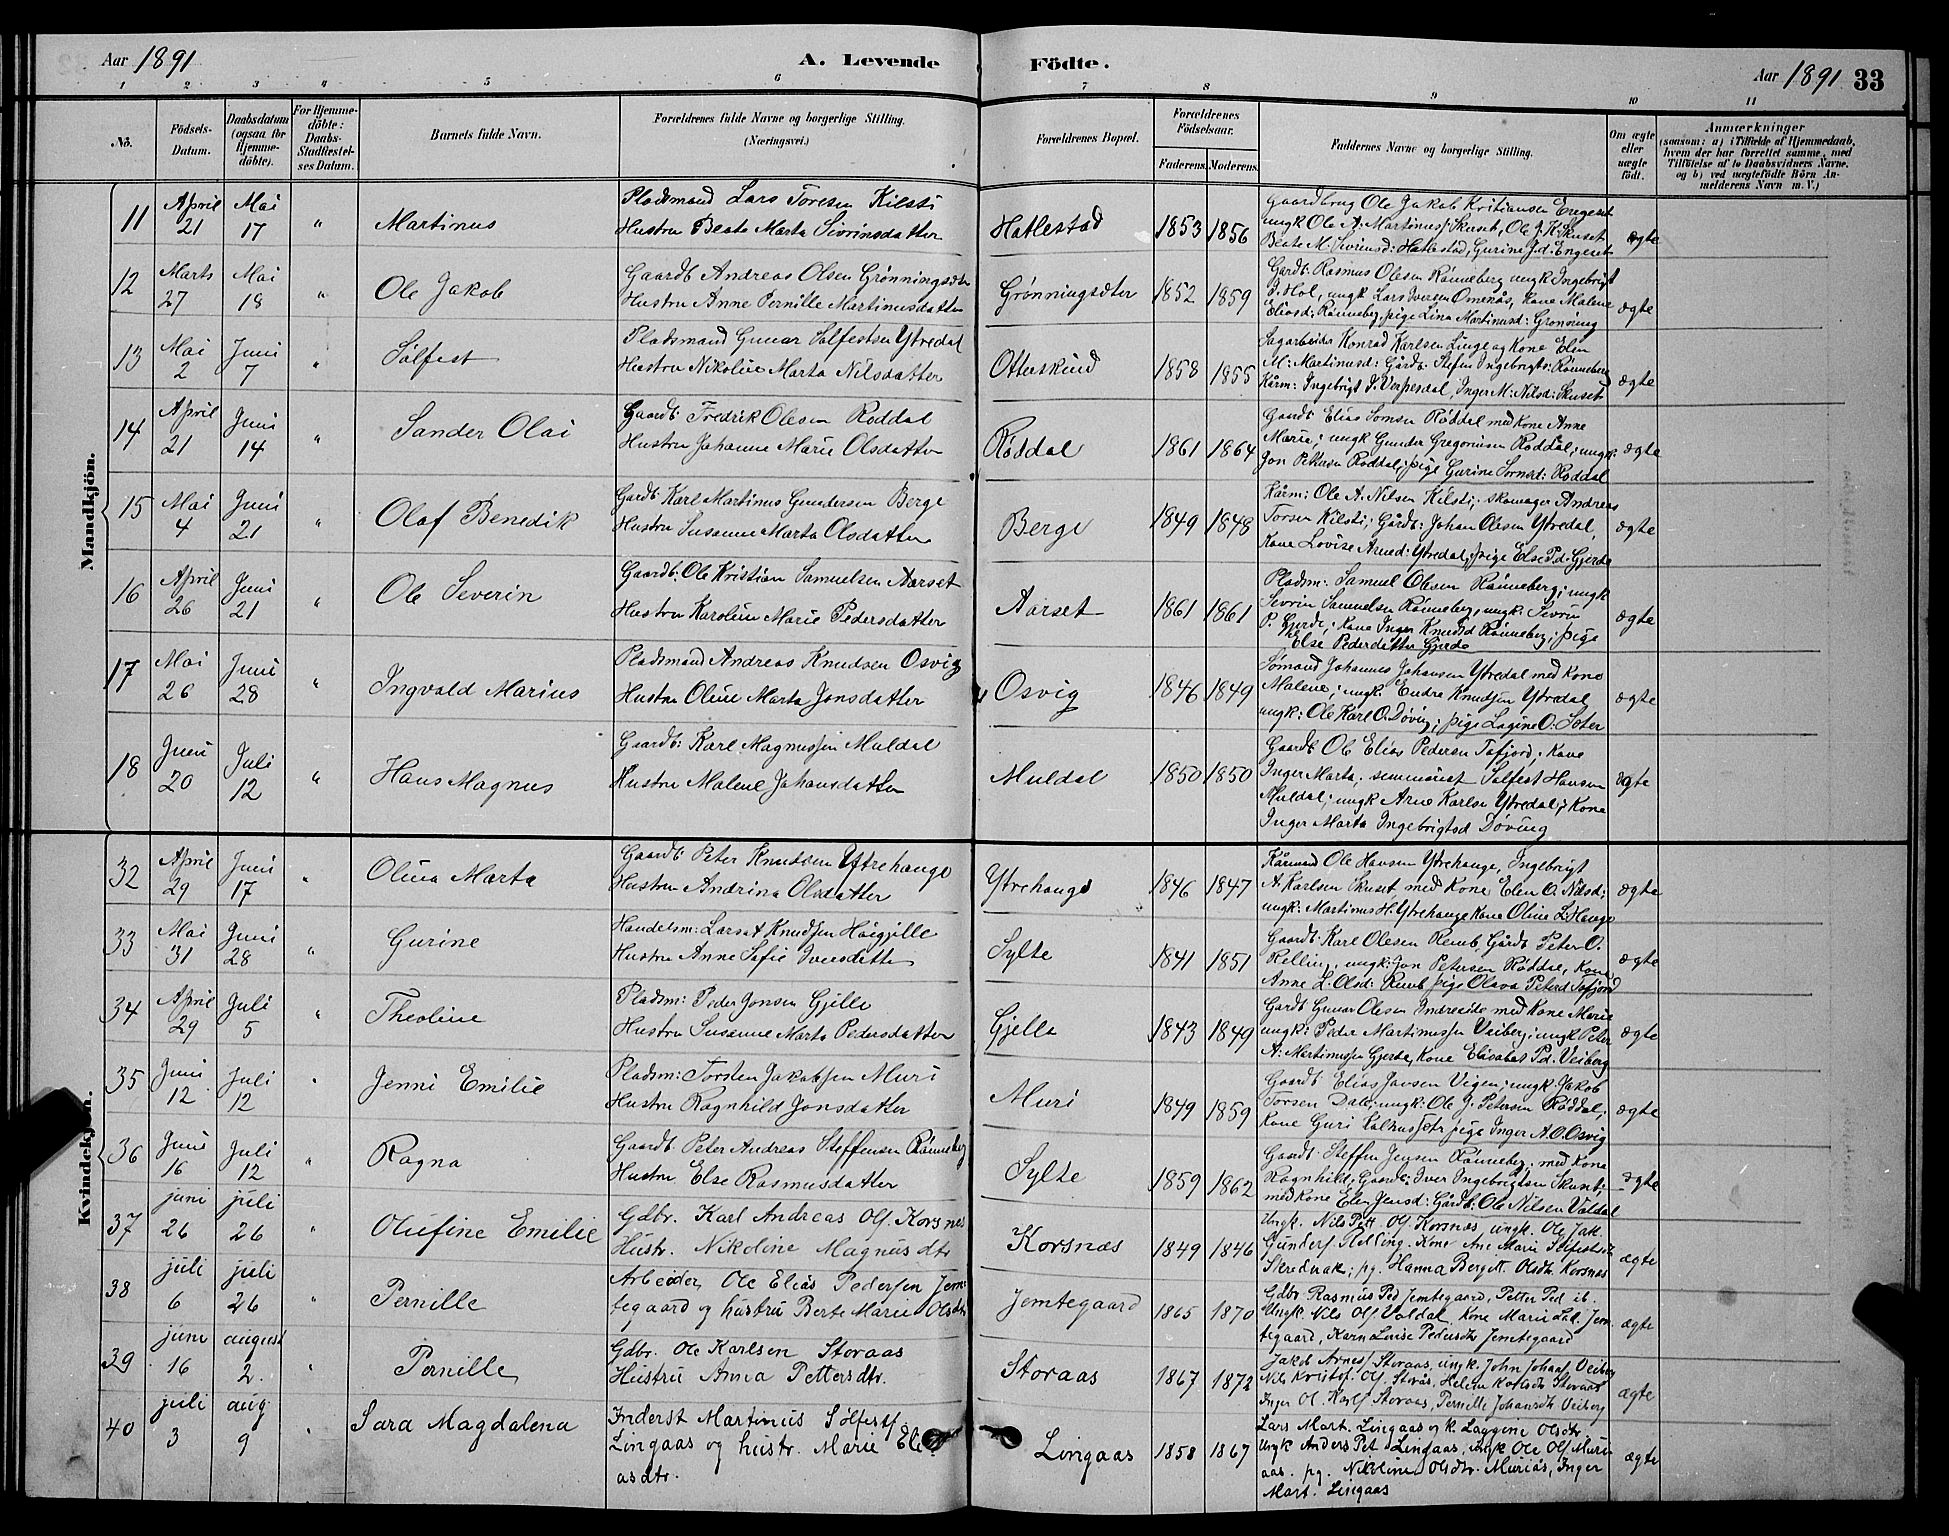 Aar 1891
A. Levende Födte.
Aar 1891 33
1 2 3 4 5 6 7 8 9 10 11
No.
Födsels-Datum.
Daabsdatum (ogsaa for Hjemmedöbte).
For Hjemmedöbte: Daabs-Stadfæstelses Datum.
Barnets fulde Navn.
Forældrenes fulde Navne og borgerlige Stilling.
(Næringsvei.)
Forældrenes Bopæl.
Forældrenes Födselsaar.
Faderens. Moderens.
Faddernes Navne og borgerlige Stilling.
Om ægte eller uægte födt.
Anmærkninger
(saasom: a) i Tilfælde af Hjemmedaab,
hvem der har forrettet samme, med
Tilföielse af to Daabsvidners Navne,
og b) ved uægtefödte Börn An-
melderens Navn m. V.)
Mandkjön.
11 April 21 Mai 17 " Martinus
Pladsmand Lars Toresen Kilsti
Hustru Beate Marta Sivrinsdatter
Hatlestad 1853 1856
Gaardbrug Ole Jakob Kristiansen Engeset
ungk Ole A. Martinus/ Skuset, Ole J. K. Skuset
Beate M. Sivrinsd: Hatlestad, Gurine J.d. Engeset
ægte
12 Marts 27 Mai 18 " Ole Jakob
Gaardb Andreas Olsen Grønningsæter
Hustru Anne Pernille Martinusdatter
Grønningsæter 1852 1859
Gardb: Rasmus Olesen Rønneberg ungk Ingebrigt
J. Hol, ungk Lars Iversen Omenås, Kone Malene
Eliasd: Rønneberg, pige Lina Martinusd: Grønning
ægte
13 Mai 2 Juni 7 " Sølfest
Pladsmand Gunar Sølfestsen Ytredal
Hustru Nikoline Marta Nilsdatter
Otterskred 1858 1855
Sagarbeider Konrad Karlsen Linge og Kone Elen
M: Martinusd: Gårdb: Stefen Ingebrigts: Rønneberg
Kårm: Ingebrigt I. Verpesdal, Inger M: Nilsd: Skuset
ægte
14 April 21 Juni 14 " Sander Olai
Gaardb: Fredrik Olesen Røddal
Hustru Johanne Marie Olsdatter
Røddal 1861 1864
Gaardb Elias Jonsen Røddal med Kone Anne
Marie; ungk Gunder Gregoriusen Røddal; ungk.
Jon Petersen Røddal; pige Gurine Jonsd: Røddal
ægte
15 Mai 4 Juni 21 " Olaf Benedik
Gardb: Karl Martinus Gundersen Berge
Hustru Susanne Marta Olsdatter
Berge 1849 1848
Kårm: Ole A. Nilsen Kilsti; skomager Andreas
Torsen Kilsti; Gårdb: Johan Olesen Ytredal,
Kone Lovise Arned: Ytredal, pige Else Pd: Gjerde
ægte
16 April 26 Juni 21 " Ole Severin
Gaardb: Ole Kristian Samuelsen Aarset
Hustru Karoline Marie Pedersdatter
Aarset 1861 1861
Pladsm: Samuel Olesen Rønneberg; ungk
Sevrin Samuelsen Rønneberg, ungk: Sevrin
P. Gjerde; Kone Inger Knudsd Rønneberg; pige
Else Pedersdatter Gjerde
ægte
17 Mai 26 Juni 28 " Ingvald Marius
Pladsmand Andreas Knudsen Osvig
Hustru Oline Marta Jonsdatter
Osvig 1846 1849
Sømand Johannes Johansen Ytredal med Kone
Malene; ungk. Endre Knudsen Ytredal
ungk: Ole Karl O. Døving; pige Lagine O. Seter
ægte
18 Juni 20 Juli 12 " Hans Magnus
Gaardb: Karl Magnussen Muldal
Hustru Malene Johansdatter
Muldal 1850 1850
Gaardb Ole Elias Pedersen Tafjord; Kone
Inger Marta. seminarist Sølfest Hansen
Muldal; ungk Arne Karlsen Ytredal; Kone
Inger Marta Ingebrigtsd Døving
ægte
Kvindekjön.
32 April 29 Juni 17 " Olina Marta
Gaardb: Peter Knudsen Ytrehange
Hustru Andrina Olsdatter
Ytrehange 1846 1847
Kårmand Ole Hansen Ytrehange, Ingebrigt
A. Karlsen Skuset med Kone Elen O. Nilsd:
ungk: Martinus H. Ytrehange Kone Oline L. Hange
ægte
33 Mai 31 Juni 28 " Gurine
Handelsm: Larsat Knudsen Høigjille
Hustru Anne Sofie Iversdatter
Sylte 1841 1851
Gaardb: Karl Olesen Remb, Gårdb Peter O.
Relling, ungk: Jon Petersen Røddal, Kone
Anne L. Olsd: Remb pige Olava Petersd Tafjord
ægte
34 April 29 Juli 5 " Theoline
Pladsm: Peder Jonsen Gjelle
Hustru Susanne Marta Pedersdatter
Gjelle 1843 1849
Gardb Gunar Olesen Indreeide med Kone Marie
ungk: Peder Martinussen Veiberg; ungk Peter
A: Martinussen Gjerde, Kone Elisabet Pd. Veiberg
ægte
35 Juni 12 Juli 12 " Jenni Emilie
Pladsm: Torsten Jakobsen Muri
Hustru Ragnhild Jonsdatter
Muri 1849 1859
Gaardb Elias Jonsen Vigen; ungk: Jakob
Torsen Dale; ungk: Ole J. Petersen Røddal;
Kone Guri pige Inger A. O. Osvig
ægte
36 Juni 16 Juli 12 " Ragna
Gaardb Peter Andreas Steffensen Rønneberg
Hustru Else Rasmusdatter
Sylte 1859 1862
Gaardb Steffen Jensen Rønneberg, med Kone
Ragnhild, Gaardb: Iver Ingebrigtsen Skuset;
med Kone Elen Jensd: Gårdb: Ole Nilsen Valdal
ægte
37 juni 26 juli 26 " Olufine Emilie
Gdbr. Karl Andreas Ols. Korsnes
Hustr. Nikoline Magnusdtr
Korsnæs 1849 1846
Ungk. Nils Pett. Ols. Korsnæs, ungk. Ole Jak.
Gunders. Relling. Kone Ane Marie Sølfestsdt
Skrednak; pg. Hanna Bergitt. Olsdtr Korsnæs
ægte
38 juli 6 juli 26 " Pernille
Arbeider Ole Eliás Pedersen Jem-
tegaard og hustru Berte Marie Olsdtr
Jemtegaard 1865 1870
Gdbr Rasmus Ped Jemtegaard, Petter Ped ib.
Ungk. Nils Ols Valdal, Kone Marie Lad. Jem
tegaard, Karn Louise Pedersdtr Jemtegaard
ægte
39 juni 16 august 2. " Pernille
Gdbr. Ole Karlsen Storaas
Hustru Anna Pettersdtr.
Storaas 1867 1872
Jakob Arness Storaas, ungk. John Johans Veiberg
Nils Kristof. Ols. Storås, Helene Karlsdtr Storaas
Inger Ol. Karls Storaas, Pernille Johansdt Veiberg
ægte
40 juli 3 aug 9 " Sara Magdalena
Inderst Martinus Sølfests.
Lingaas og hustr. Marie Eli
asdtr.
Lingaas 1858 1867
Lars Mart. Lingaas og k. Laggine Olsdtr.
Ungk Anders Pet Lingaas, ungk Ole Ols Muri
aas. pg. Nikoline Olsdtr. Muriås, Inger
Mart. Lingaas
ægte